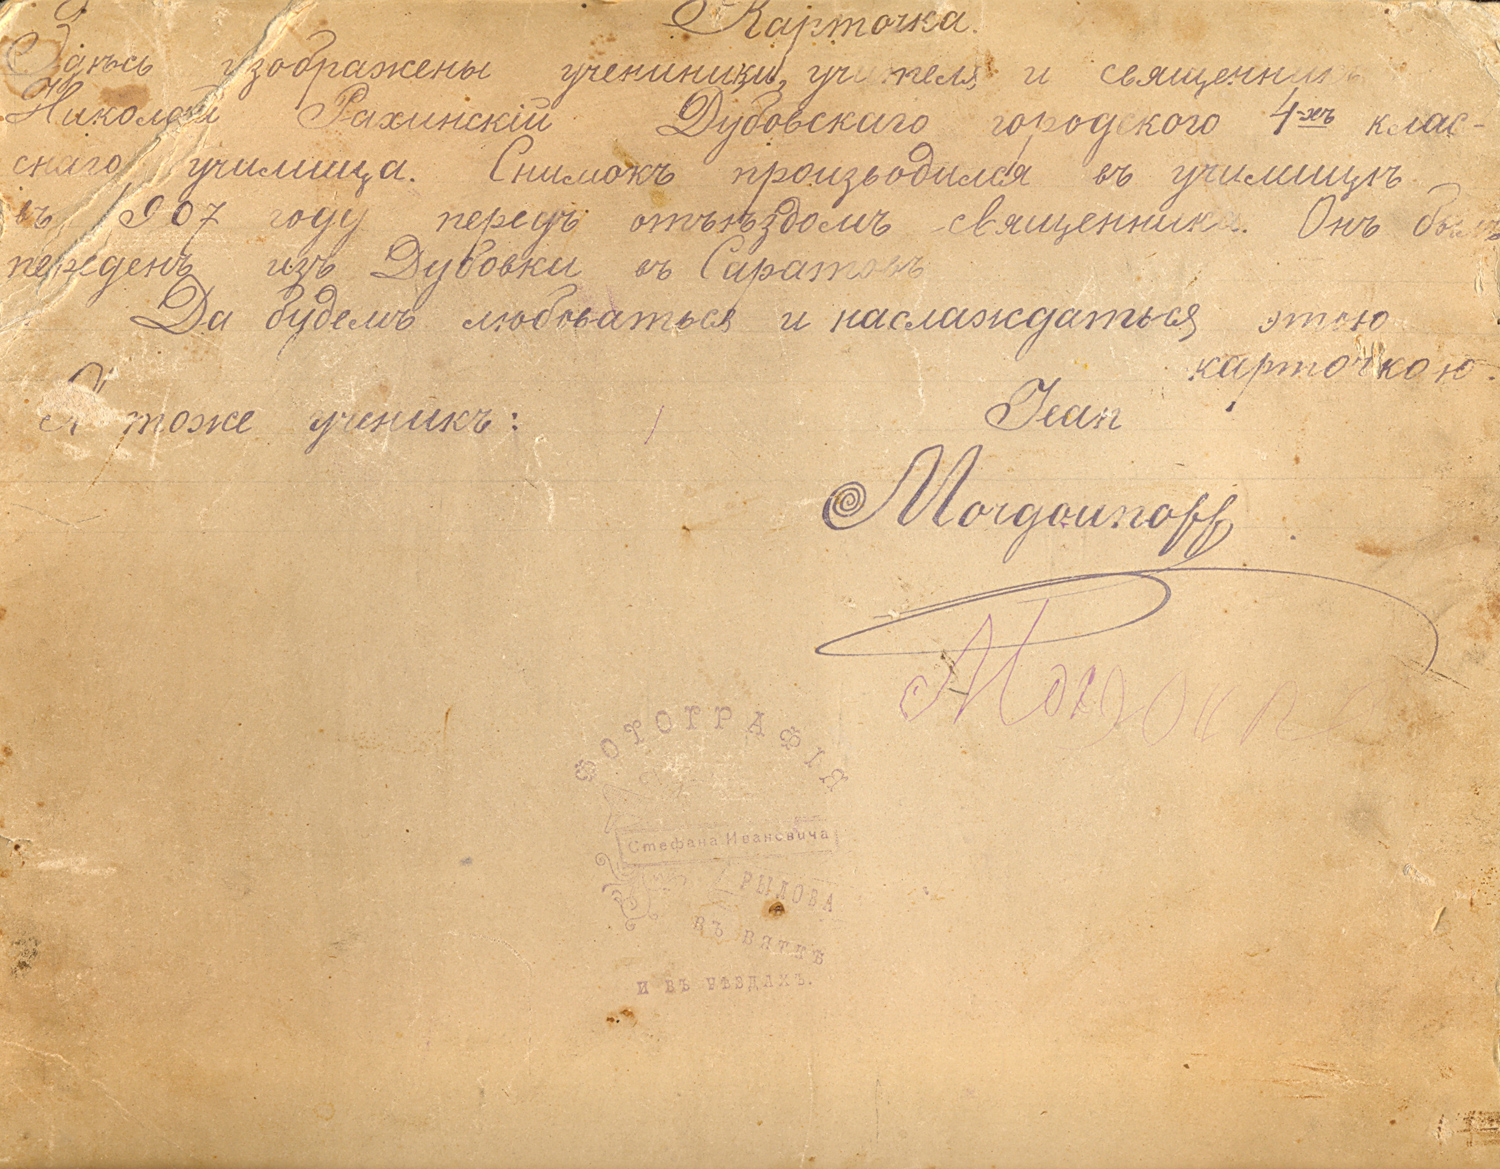 Карточка.
Здѣсь изображены учениники, учителя и священникъ
Николай Рахинскій Дубовскаго городского 4-хъ клас-
снаго училища. Снимокъ произьодился въ училищѣ
въ 907 году передъ отъѣздомъ священника. Онъ былъ
переденъ изъ Дубовки въ Саратовъ
Да будемъ любоваться и наслаждаться этою
карточкою.
Я тоже ученикъ: Jean
Mordounoff
ФОТОГРАФІЯ
Стефана Ивановича
РЫЛОВА
ВЪ ВЯТКѢ
И ВЪ УѢЗДАХЪ.